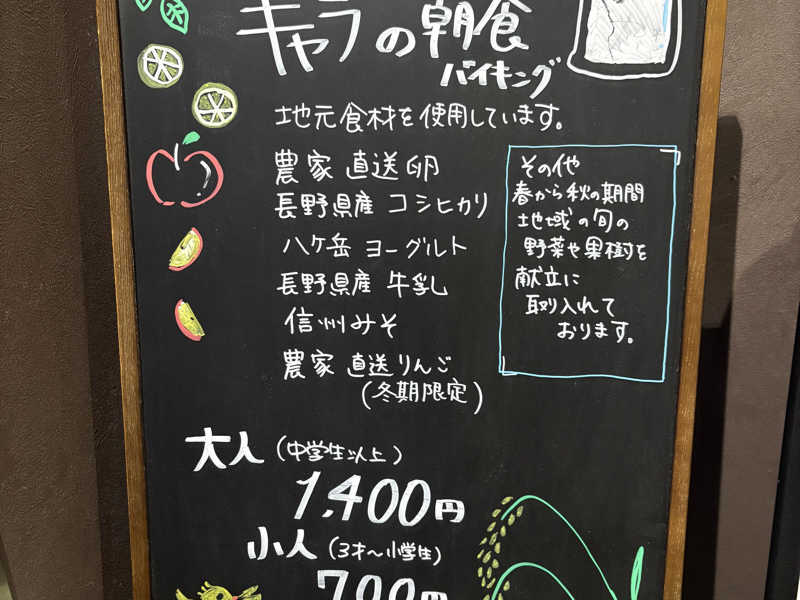 キャラの朝食
バイキング
地元食材を使用しています。
農家 直送 卵
長野県産 コシヒカリ
八ケ岳 ヨーグルト
長野県産 牛乳
信州みそ
農家 直送りんご
(冬期限定)
その他
春から秋の期間
地域の旬の
野菜や果樹を
献立に
取り入れて
おります。
大人 (中学生以上)
1,400円
小人 (3才〜小学生)
700円